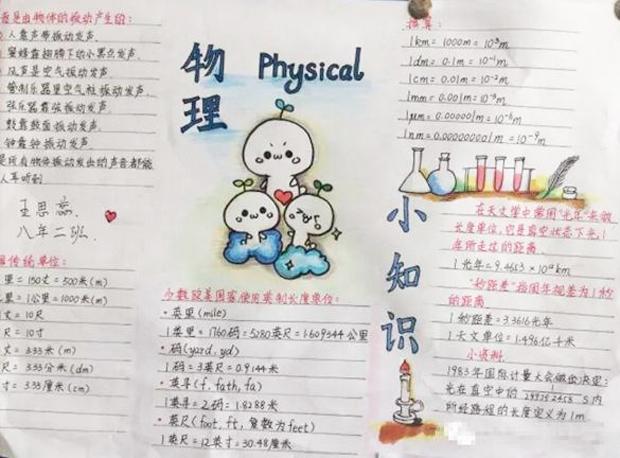 音是由物体的振动产生的:
人靠声带振动发声.
蜜蜂靠翅膀下的小黑点发声.
风声是空气振动发声.
管制乐器里空气柱振动发声.
弦乐器靠弦振动发声.
鼓靠鼓面振动发声.
钟靠钟振动发声.
是所有物体振动发出的声音都能
人耳听到
王思蕊
八年二班.
传统单位:
里=150丈=500米(m)
里=1公里=1000米(m)
丈=10尺
尺=10寸
丈=3.33米(m)
尺=3.33分米(dm)
寸=3.33厘米(cm)
物理
Physical
少数欧美国家使用英制长度单位:
·英里(mile)
1英里=1760码=5280英尺=1.609344公里
·码(yard, yd)
1码=3英尺=0.9144米
·英寻(f, fath, fa)
1英寻=2码=1.8288米
·英尺(foot, ft, 复数为feet)
1英尺=12英寸=30.48厘米
换算:
1km=1000m=10³m
1dm=0.1m=10⁻¹m
1cm=0.01m=10⁻²m
1mm=0.001m=10⁻³m
1μm=0.000001m=10⁻⁶m
1nm=0.000000001m=10⁻⁹m
小知识
在天文学中常用"光年"来做
长度单位,它是真空状态下光1
年所走过的距离
1光年=9.4653×10¹²km
"秒距差"指周年视差为1秒
的距离
1秒距差=3.3616光年
1天文单位=1.496亿千米
小资料
1983年国际计量大会做出决定:
光在真空中的1/299792458 s内
所经路程的长度定义为1m